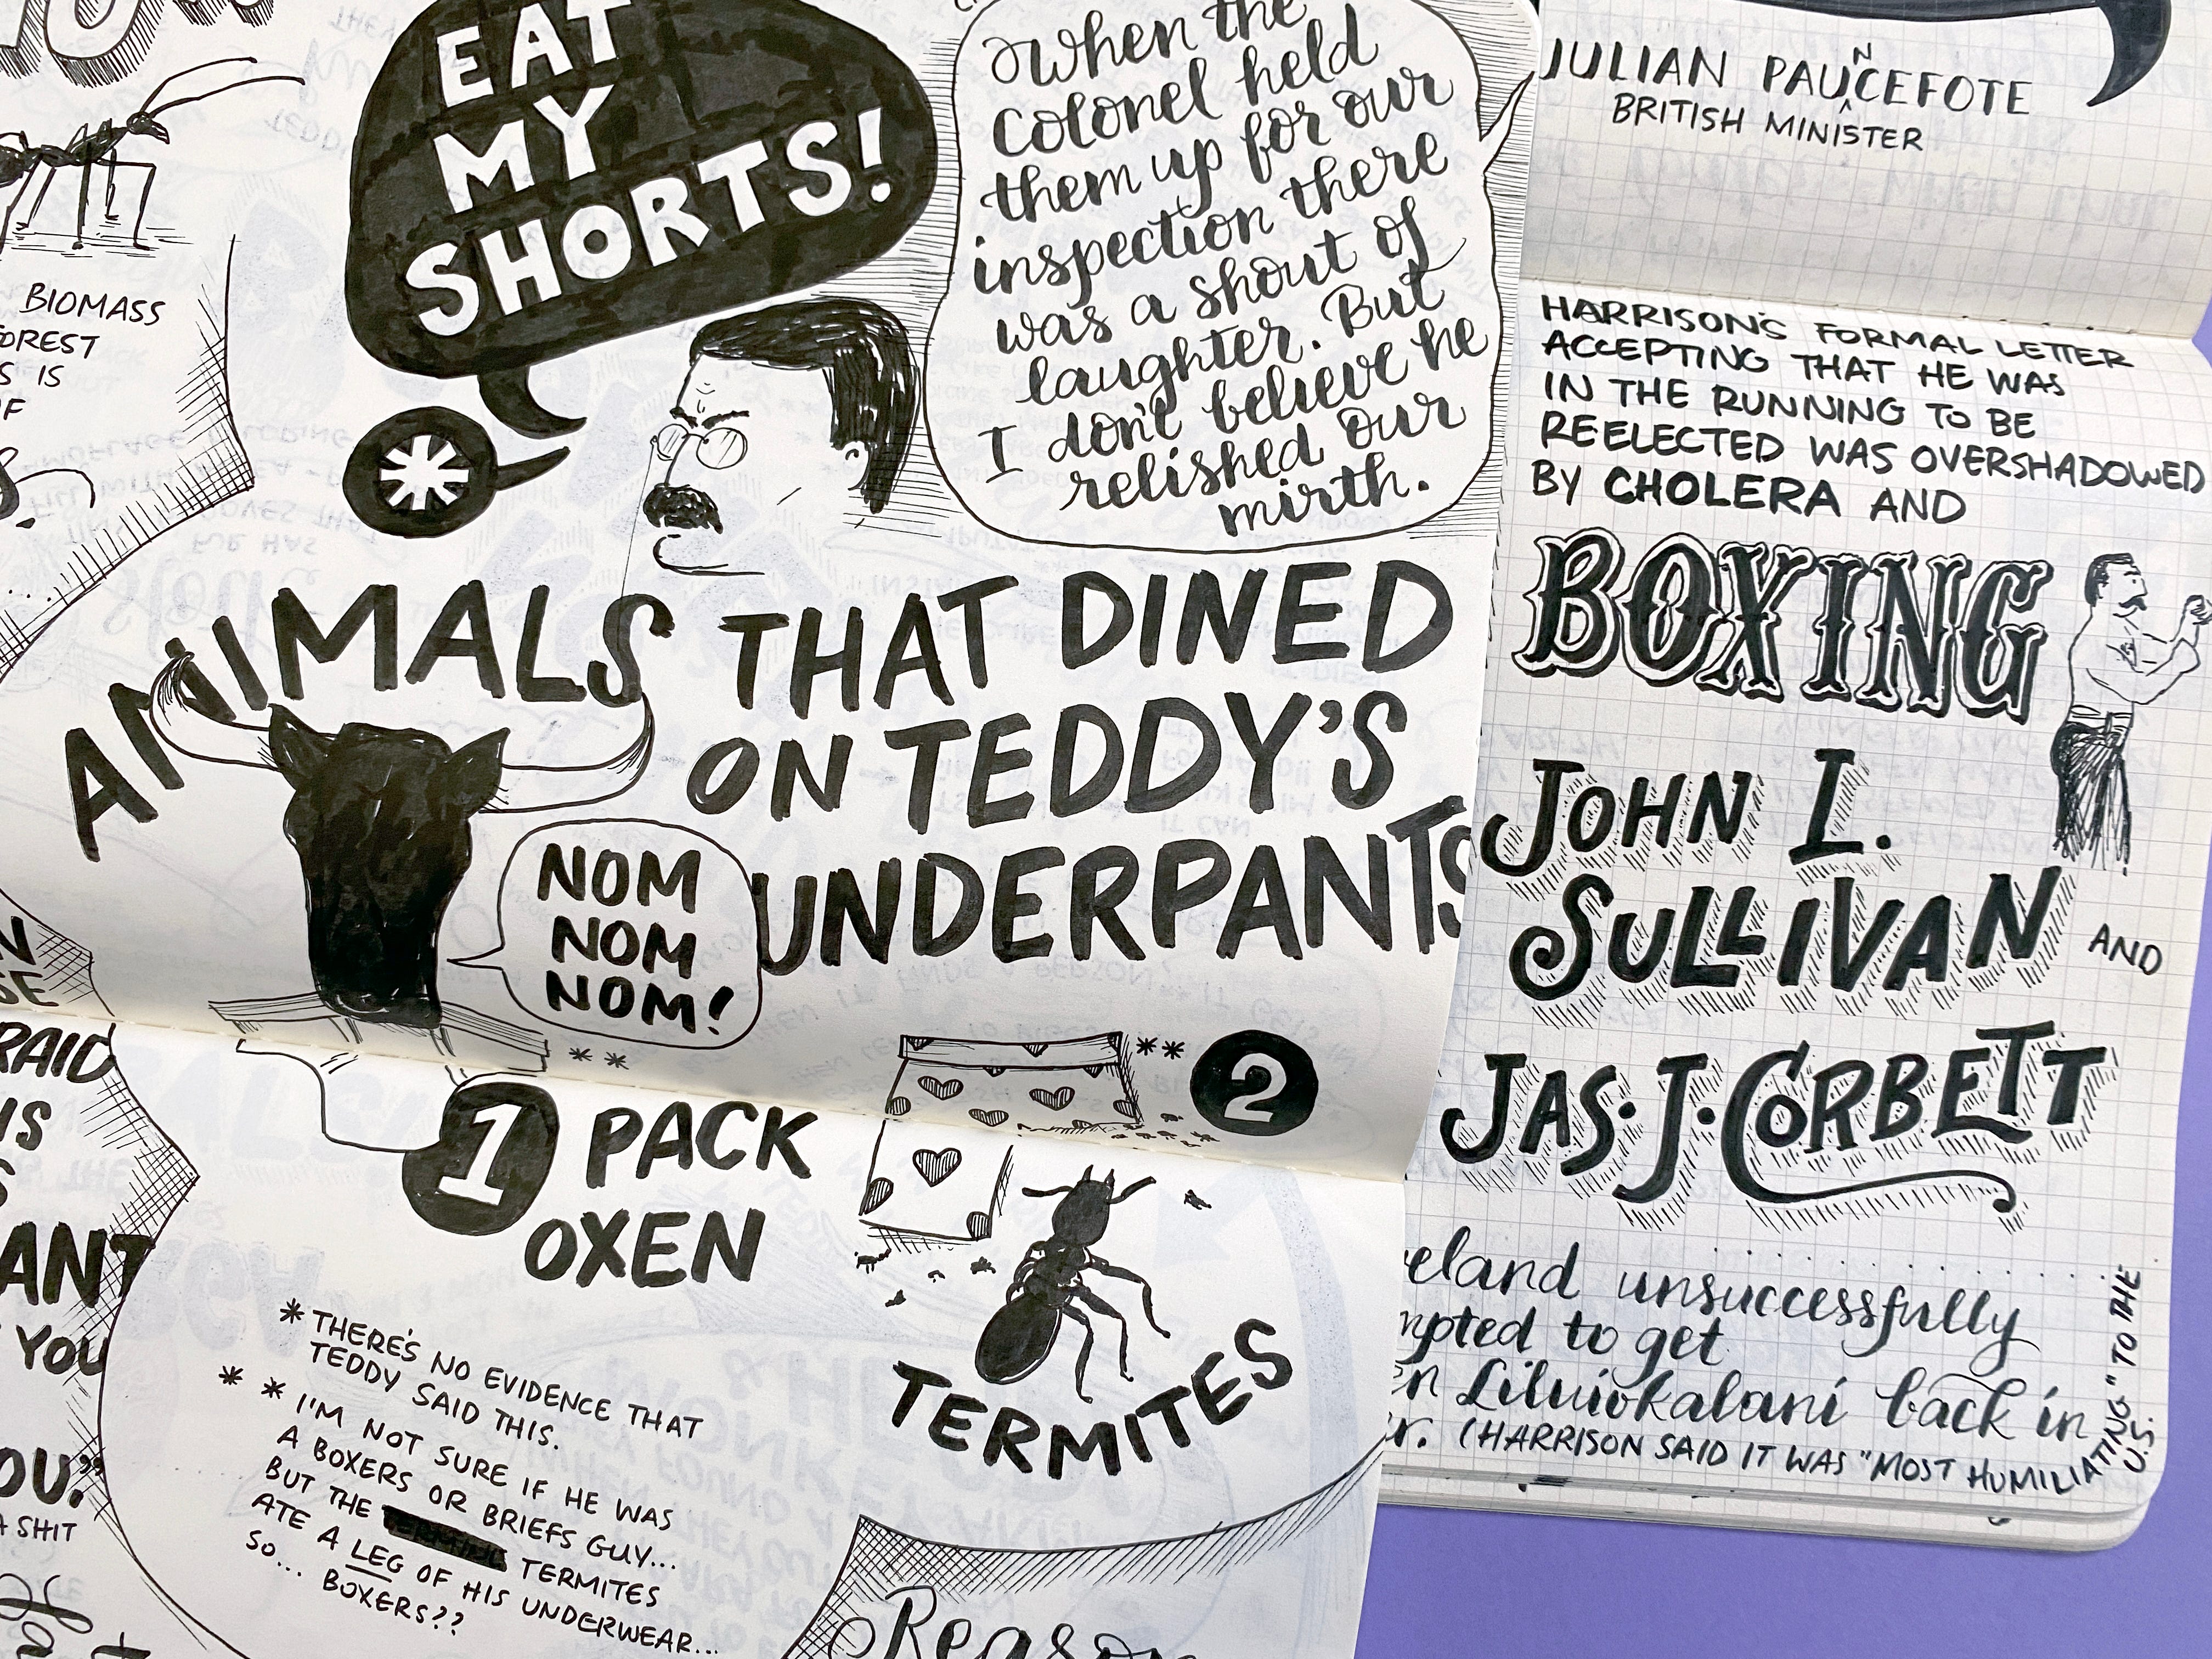 BIOMASS
FOREST
IS
EAT
MY
SHORTS!
*
When the
Colonel held
them up for our
inspection there
was a shout of
laughter. But
I don't believe he
relished our
mirth.
ANIMALS THAT DINED
ON TEDDY'S
UNDERPANTS
NOM
NOM
NOM!
**
1 PACK
OXEN
** 2
TERMITES
* THERE'S NO EVIDENCE THAT
TEDDY SAID THIS.
* * I'M NOT SURE IF HE WAS
A BOXERS OR BRIEFS GUY...
BUT THE TERMITES
ATE A LEG OF HIS UNDERWEAR...
SO... BOXERS??
YOU
OU."
A SHIT
Reason
JULIAN PAUNCEFOTE
BRITISH MINISTER
HARRISON'S FORMAL LETTER
ACCEPTING THAT HE WAS
IN THE RUNNING TO BE
REELECTED WAS OVERSHADOWED
BY CHOLERA AND
BOXING
JOHN L.
SULLIVAN AND
JAS. J. CORBETT
eland unsuccessfully
mpted to get
en Liluiokalani back in
r. (HARRISON SAID IT WAS "MOST HUMILIATING" TO THE
U.S.